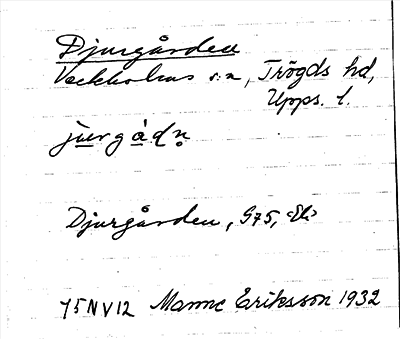 Djurgården
Veckholms sn, Trögds hd,
Upps. l.
jurgådn
Djurgården, G75, <Ek>
75NV12 Manne Eriksson 1932